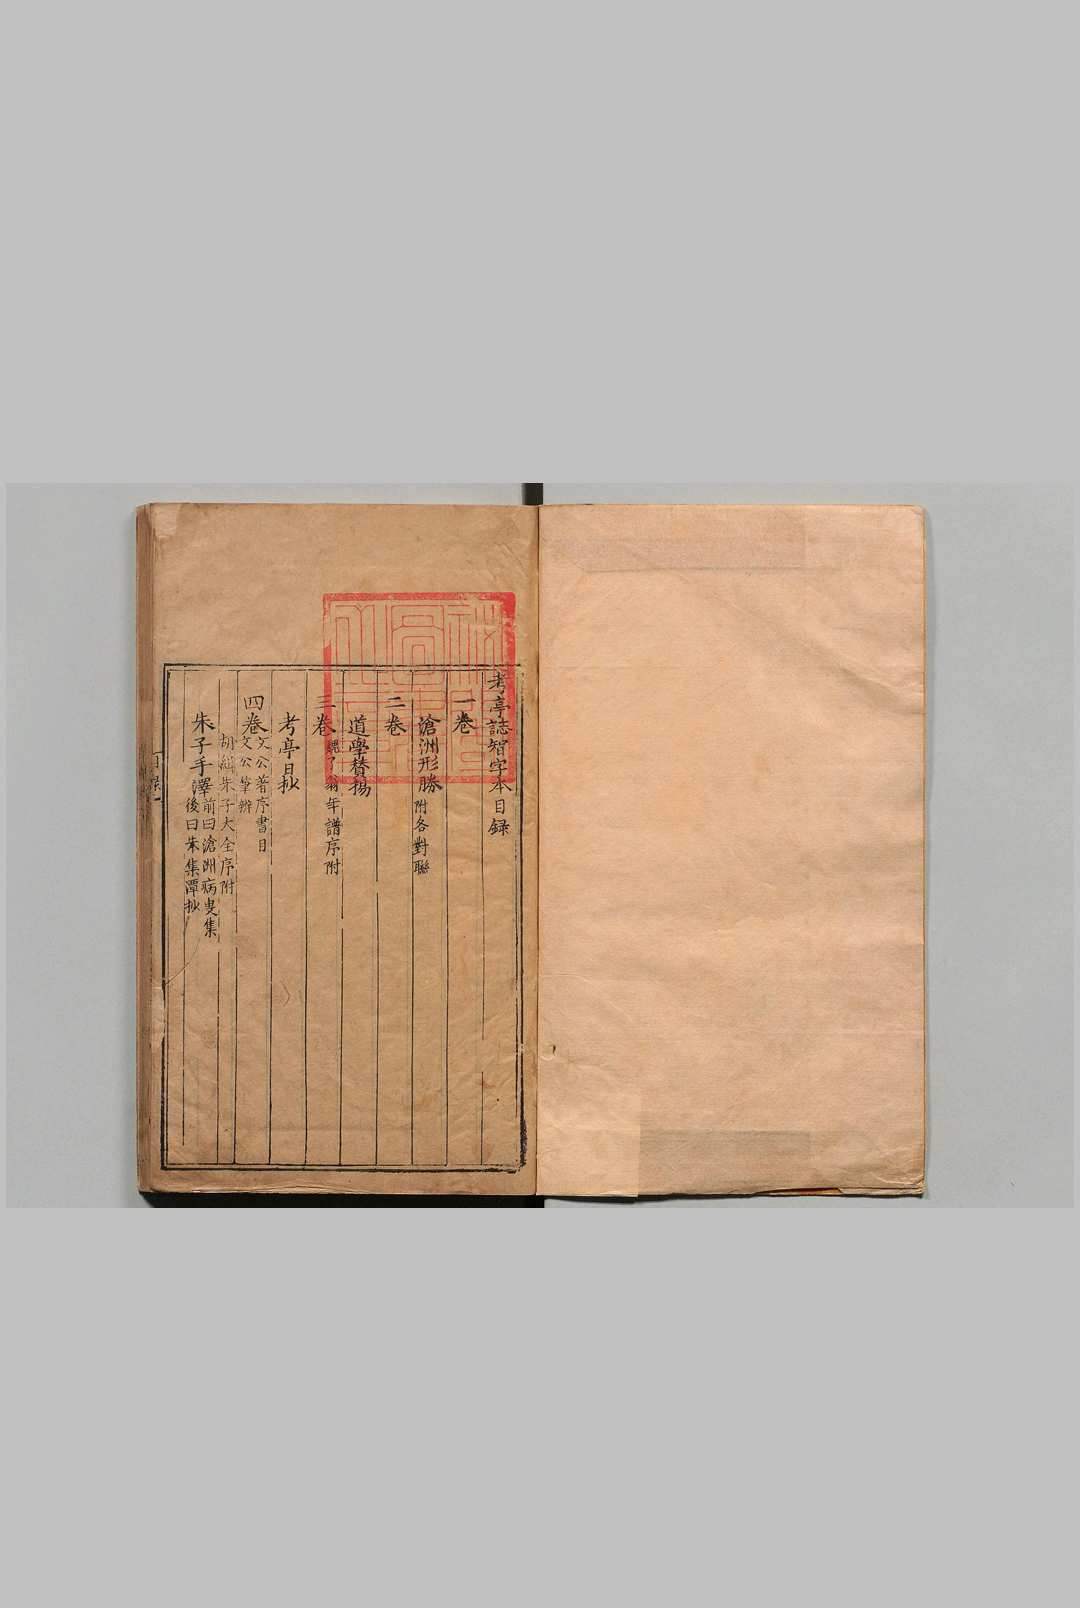 考亭誌智字本目録
一卷
滄洲形勝附各對聯
二卷
道學賛揚
三卷魏了翁年譜序附
考亭日抄
四卷文公著序書目
文公筆辨
胡緝朱子大全序附
朱子手澤前曰滄洲病叟集
後曰朱集潭抄